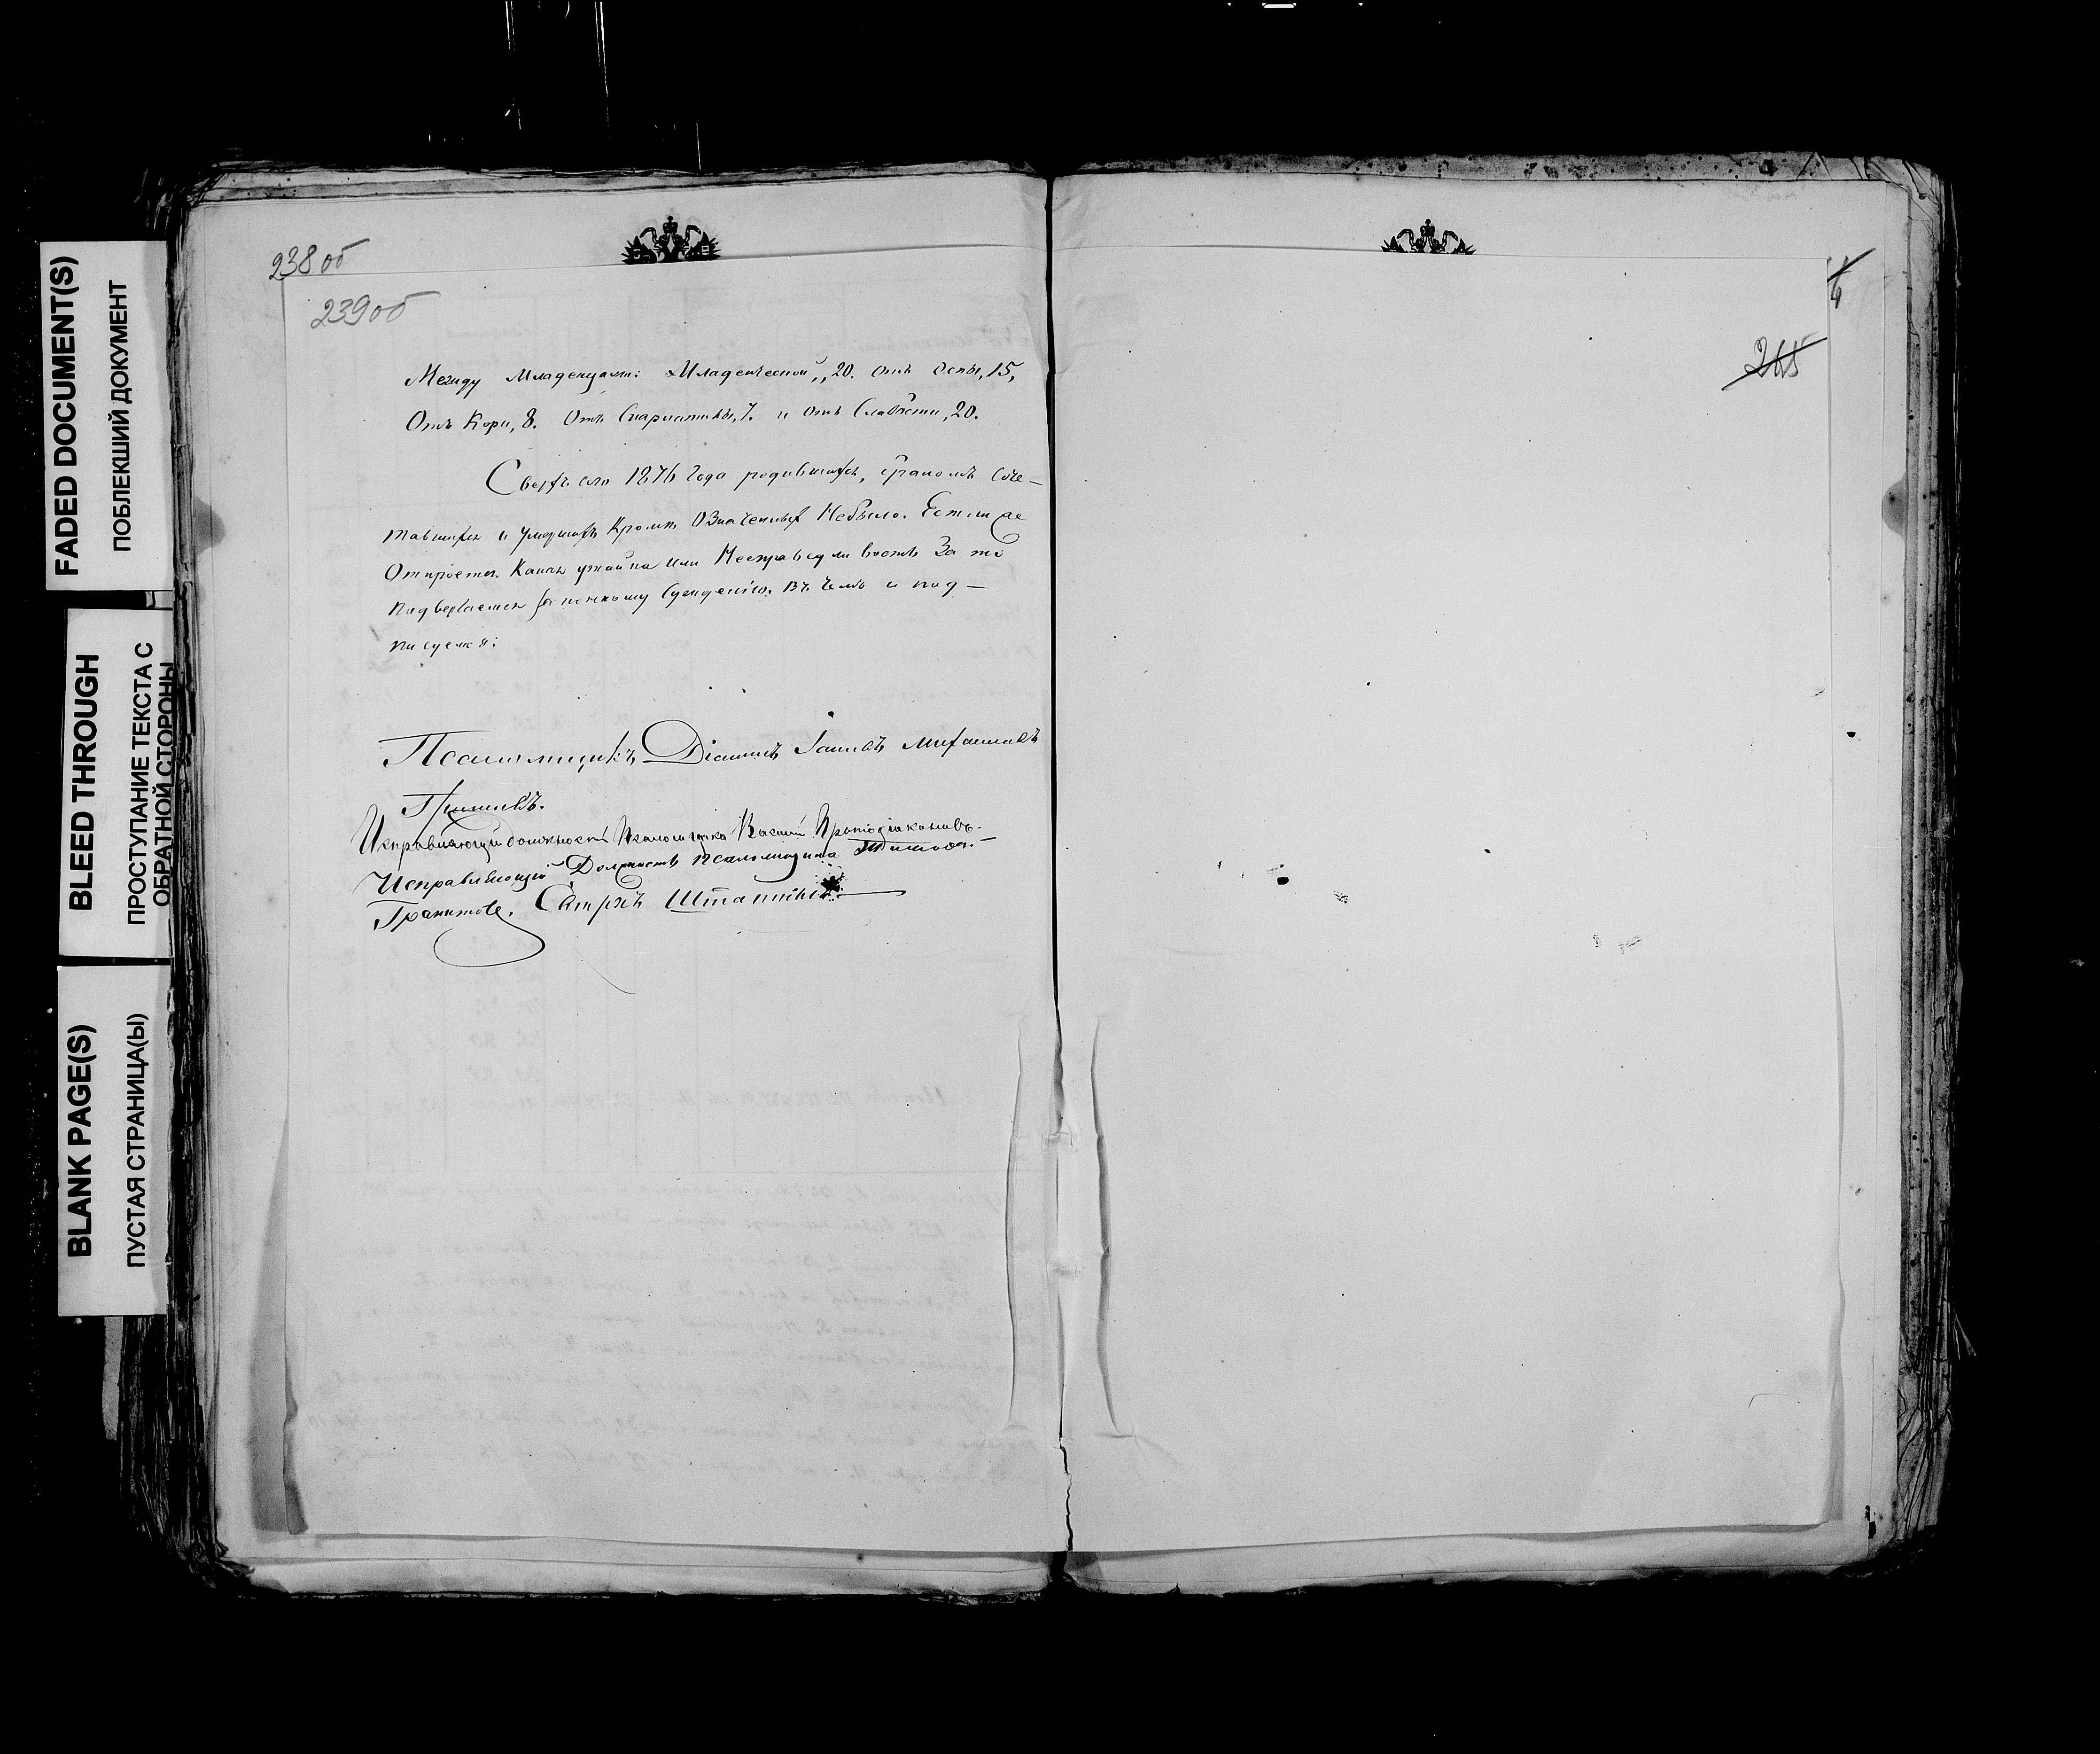 238 об
239 об
Между Младенцами: Младенческой, 20. отъ Оспы, 15,
Отъ Кори, 8. Отъ Скарлатины, 7. и отъ Слабости, 20.
Сверхъ сего 1876 года родившихся, бракомъ соче-
тавшихся и умершихъ Кромѣ Означенныхъ Небыло. Естли же
Откроется Какая утайка или Несправедливость За то
подвергаемся законному Сужденію. Въ чемъ и под-
писуемся:
Псаломщикъ Діаконъ Іаковъ Михаиловъ

Исправляющій должность Псаломщика Василій Протодіаконовъ.
Исправляющій Должность псаломщика
Гранитовъ.
265
FADED DOCUMENT(S)
ПОБЛЕКШИЙ ДОКУМЕНТ
BLEED THROUGH
ПРОСТУПАНИЕ ТЕКСТА С
ОБРАТНОЙ СТОРОНЫ
BLANK PAGE(S)
ПУСТАЯ СТРАНИЦА(Ы)